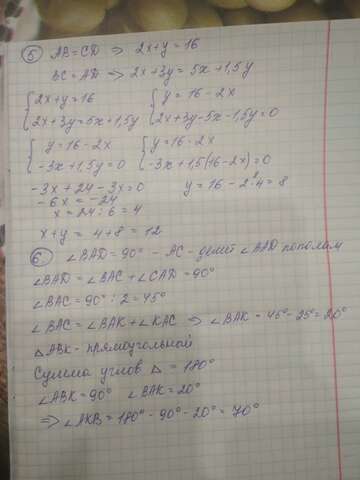 5 AB=CD ⇒ 2x+y=16
BC=AD ⇒ 2x+3y=5x+1,5y
{2x+y=16 {y=16-2x
{2x+3y=5x+1,5y {2x+3y-5x-1,5y=0
{y=16-2x {y=16-2x
{-3x+1,5y=0 {-3x+1,5(16-2x)=0
-3x+24-3x=0 y=16-2·4=8
-6x=-24
x=24:6=4
x+y=4+8=12
6 ∠BAD=90° - AC - делит ∠BAD пополам
∠BAD=∠BAC+∠CAD=90°
∠BAC=90°:2=45°
∠BAC=∠BAK+∠KAC ⇒ ∠BAK=45°-25°=20°
△ABK-прямоугольный
Сумма углов △ = 180°
∠ABK=90° ∠BAK=20°
⇒ ∠AKB=180°-90°-20°=70°